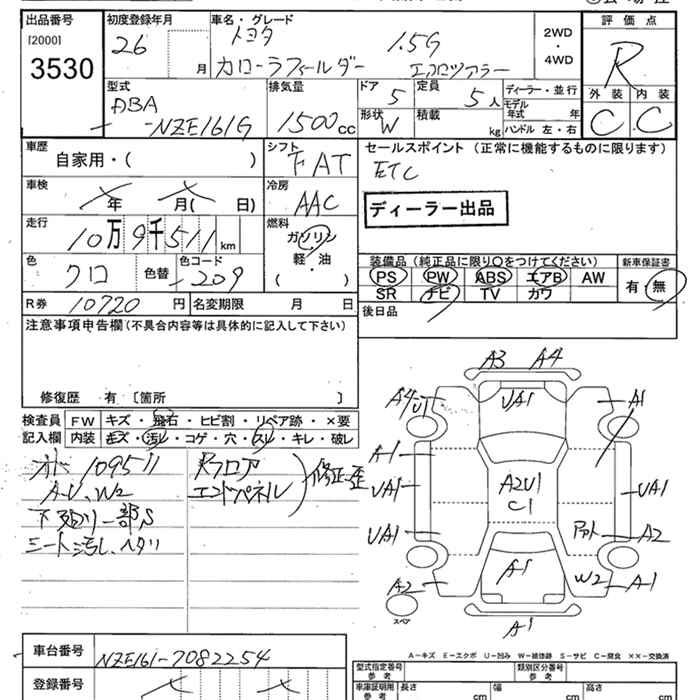 出品番号
[2000]
3530
初度登録年月
26 月
車名・グレード
トヨタ 1.5G
カローラフィールダー エアロツアラー
2WD
・
4WD
評価点
R
外装 内装
C C
型式
DBA
-NZE161G
排気量
1500cc
ドア 5
定員 5人
形状 W
積載 kg
ディーラー・並行
モデル年式 年
ハンドル 左・右
車歴
自家用・( )
シフト
F AT
セールスポイント (正常に機能するものに限ります)
ETC
ディーラー出品
車検
年 月( 日)
冷房
AAC
走行
10万9千511km
燃料
ガソリン
軽・油
( )
色
クロ
色替
色コード
209
装備品 (純正品に限り〇をつけてください)
PS PW ABS エアB AW
SR ナビ TV カワ
新車保証書
有・無
R券 10720円
名変期限 月 日
後日品
注意事項申告欄 (不具合内容等は具体的に記入して下さい)
修復歴 有〔箇所 〕
検査員記入欄
FW キズ・飛石・ヒビ割・リペア跡・×要
内装 キズ・汚レ・コゲ・穴・スレ・キレ・破レ
109511
A-U、W2
下廻り一部S
シート汚し、ヘタリ
Rフロア
エンドパネル
修正歪
A3 A4
A4 UT
UA1
A1
A-1
UA1
A2U1
C1
UA1
UA1
A2
A2
A-1
W2
A-1
A1
スペア
A-キズ E-エクボ U-凹み W-板修跡 S-サビ C-腐食 ××-交換済
車台番号
NZE161-7082254
登録番号
型式指定番号
参考
類別区分番号
参考
車庫証明用
参考
長さ cm
幅 cm
高さ cm